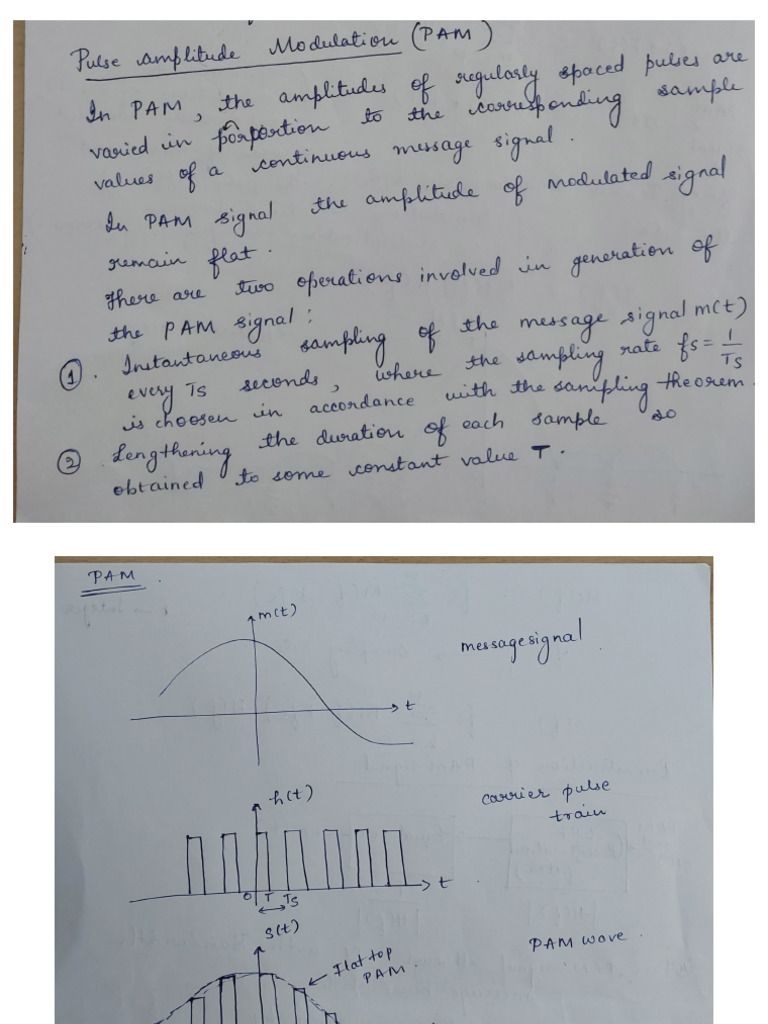 Pulse Amplitude Modulation (PAM)
In PAM, the amplitudes of regularly spaced pulses are
varied in porportion to the corresponding sample
values of a continuous message signal.
In PAM signal the amplitude of modulated signal
remain flat.
There are two operations involved in generation of
the PAM signal:
1. Instantaneous sampling of the message signal m(t)
every Ts seconds, where the sampling rate fs = 1/Ts
is choosen in accordance with the sampling theorem.
2 Lengthening the duration of each sample so
obtained to some constant value T.
PAM.
m(t)
message signal
t
h(t)
carrier pulse
train
t
0 T Ts
s(t)
PAM wave.
Flat top
PAM.